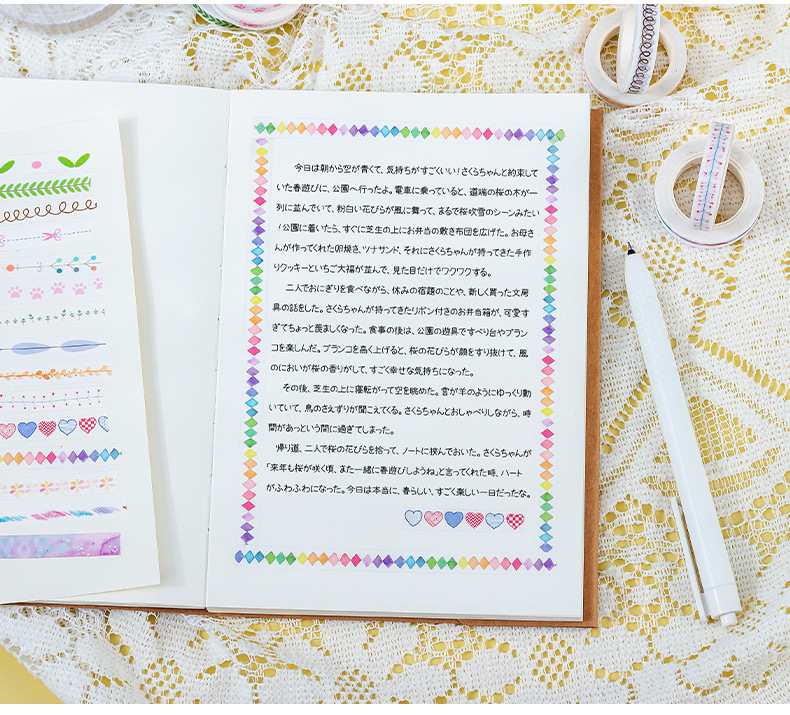 今日は朝から空が青くて、気持ちがすごくいい！さくらちゃんと約束して
いた春遊びに、公園へ行ったよ。電車に乗っていると、道端の桜の木が一
列に並んでいて、粉白い花びらが風に舞って、まるで桜吹雪のシーンみたい
！公園に着いたら、すぐに芝生の上にお弁当の敷き布団を広げた。お母さ
んが作ってくれた卵焼き、ツナサンド、それにさくらちゃんが持ってきた手作
りクッキーといちご大福が並んで、見た目だけでワクワクする。
二人でおにぎりを食べながら、休みの宿題のことや、新しく買った文房
具の話をした。さくらちゃんが持ってきたリボン付きのお弁当箱が、可愛す
ぎてちょっと羨ましくなった。食事の後は、公園の遊具ですべり台やブラン
コを楽しんだ。ブランコを高く上げると、桜の花びらが顔をすり抜けて、風
のにおいが桜の香りがして、すごく幸せな気持ちになった。
その後、芝生の上に寝転がって空を眺めた。雲が羊のようにゆっくり動
いていて、鳥のさえずりが聞こえてくる。さくらちゃんとおしゃべりしながら、時
間があっという間に過ぎてしまった。
帰り道、二人で桜の花びらを拾って、ノートに挟んでおいた。さくらちゃんが
「来年も桜が咲く頃、また一緒に春遊びしようね」と言ってくれた時、ハート
がふわふわになった。今日は本当に、春らしい、すごく楽しい一日だったな。